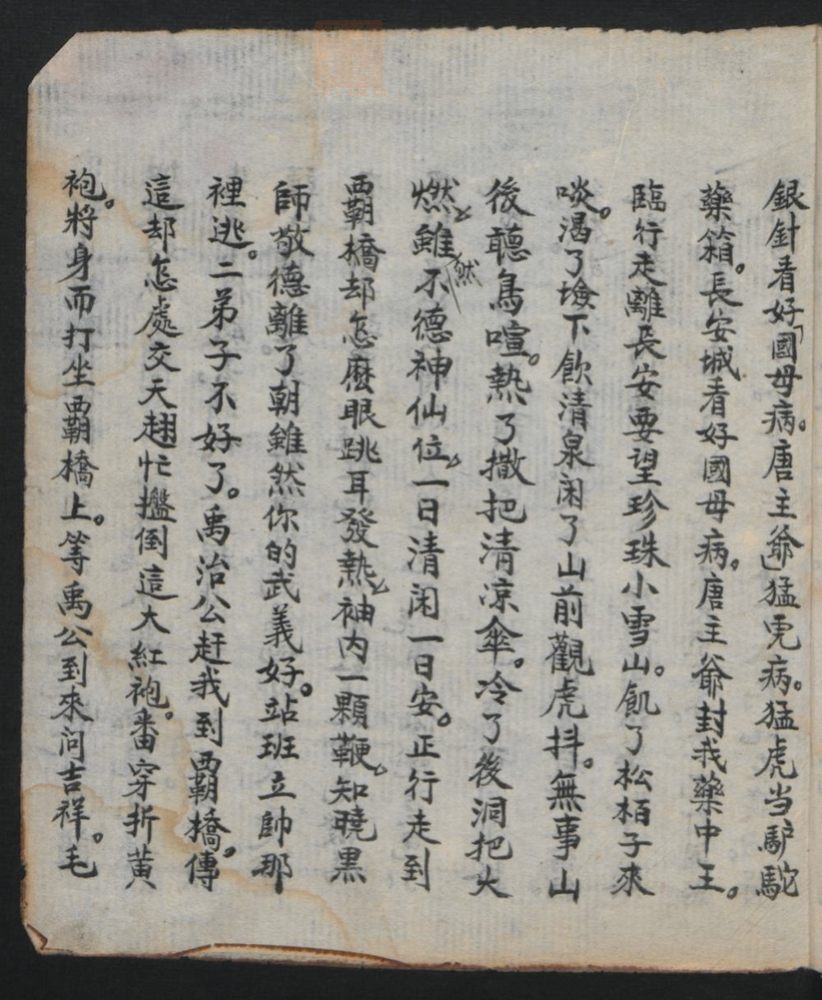 銀針看好國母病。唐主爺猛虎病。猛虎当馿駝
藥箱。長安城看好國母病。唐主爺封我藥中王。
臨行走離長安要望珍珠小雪山。飢了松栢子來
啖。渴了墝下飲清泉闲了山前觀虎抖。無事山
後聽鳥喧。熱了撒把清凉傘。冷了後洞把火
燃。雖然不德神仙位。一日清闲一日安。正行走到
覇橋却怎麼眼跳耳發熱。袖内一顆鞭。知曉黒
師敬德離了朝雖然你的武義好。站班立帥那
裡逃。二弟子不好了。禹治公赶我到覇橋。傳
這却怎處交天翅忙擥倒這大紅袍。番穿折黃
袍。將身而打坐覇橋上。等禹公到來问吉祥。毛